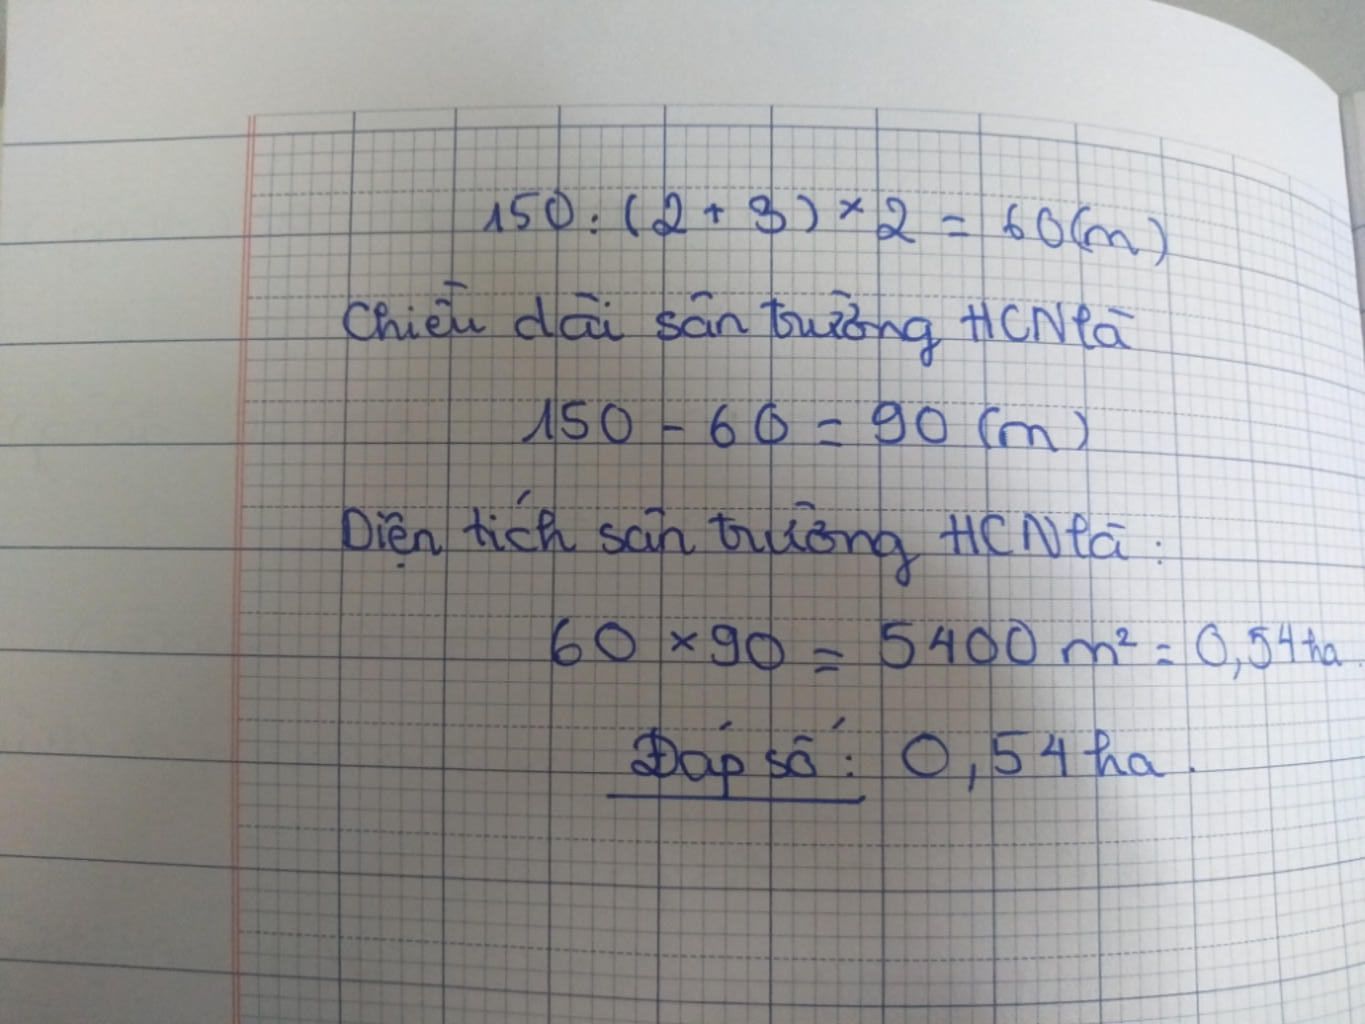 150 : (2 + 3) × 2 = 60 (m)
Chiều dài sân trường HCN là
150 - 60 = 90 (m)
Diện tích sân trường HCN là :
60 × 90 = 5400 m² = 0,54 ha.
Đáp số : 0,54 ha.